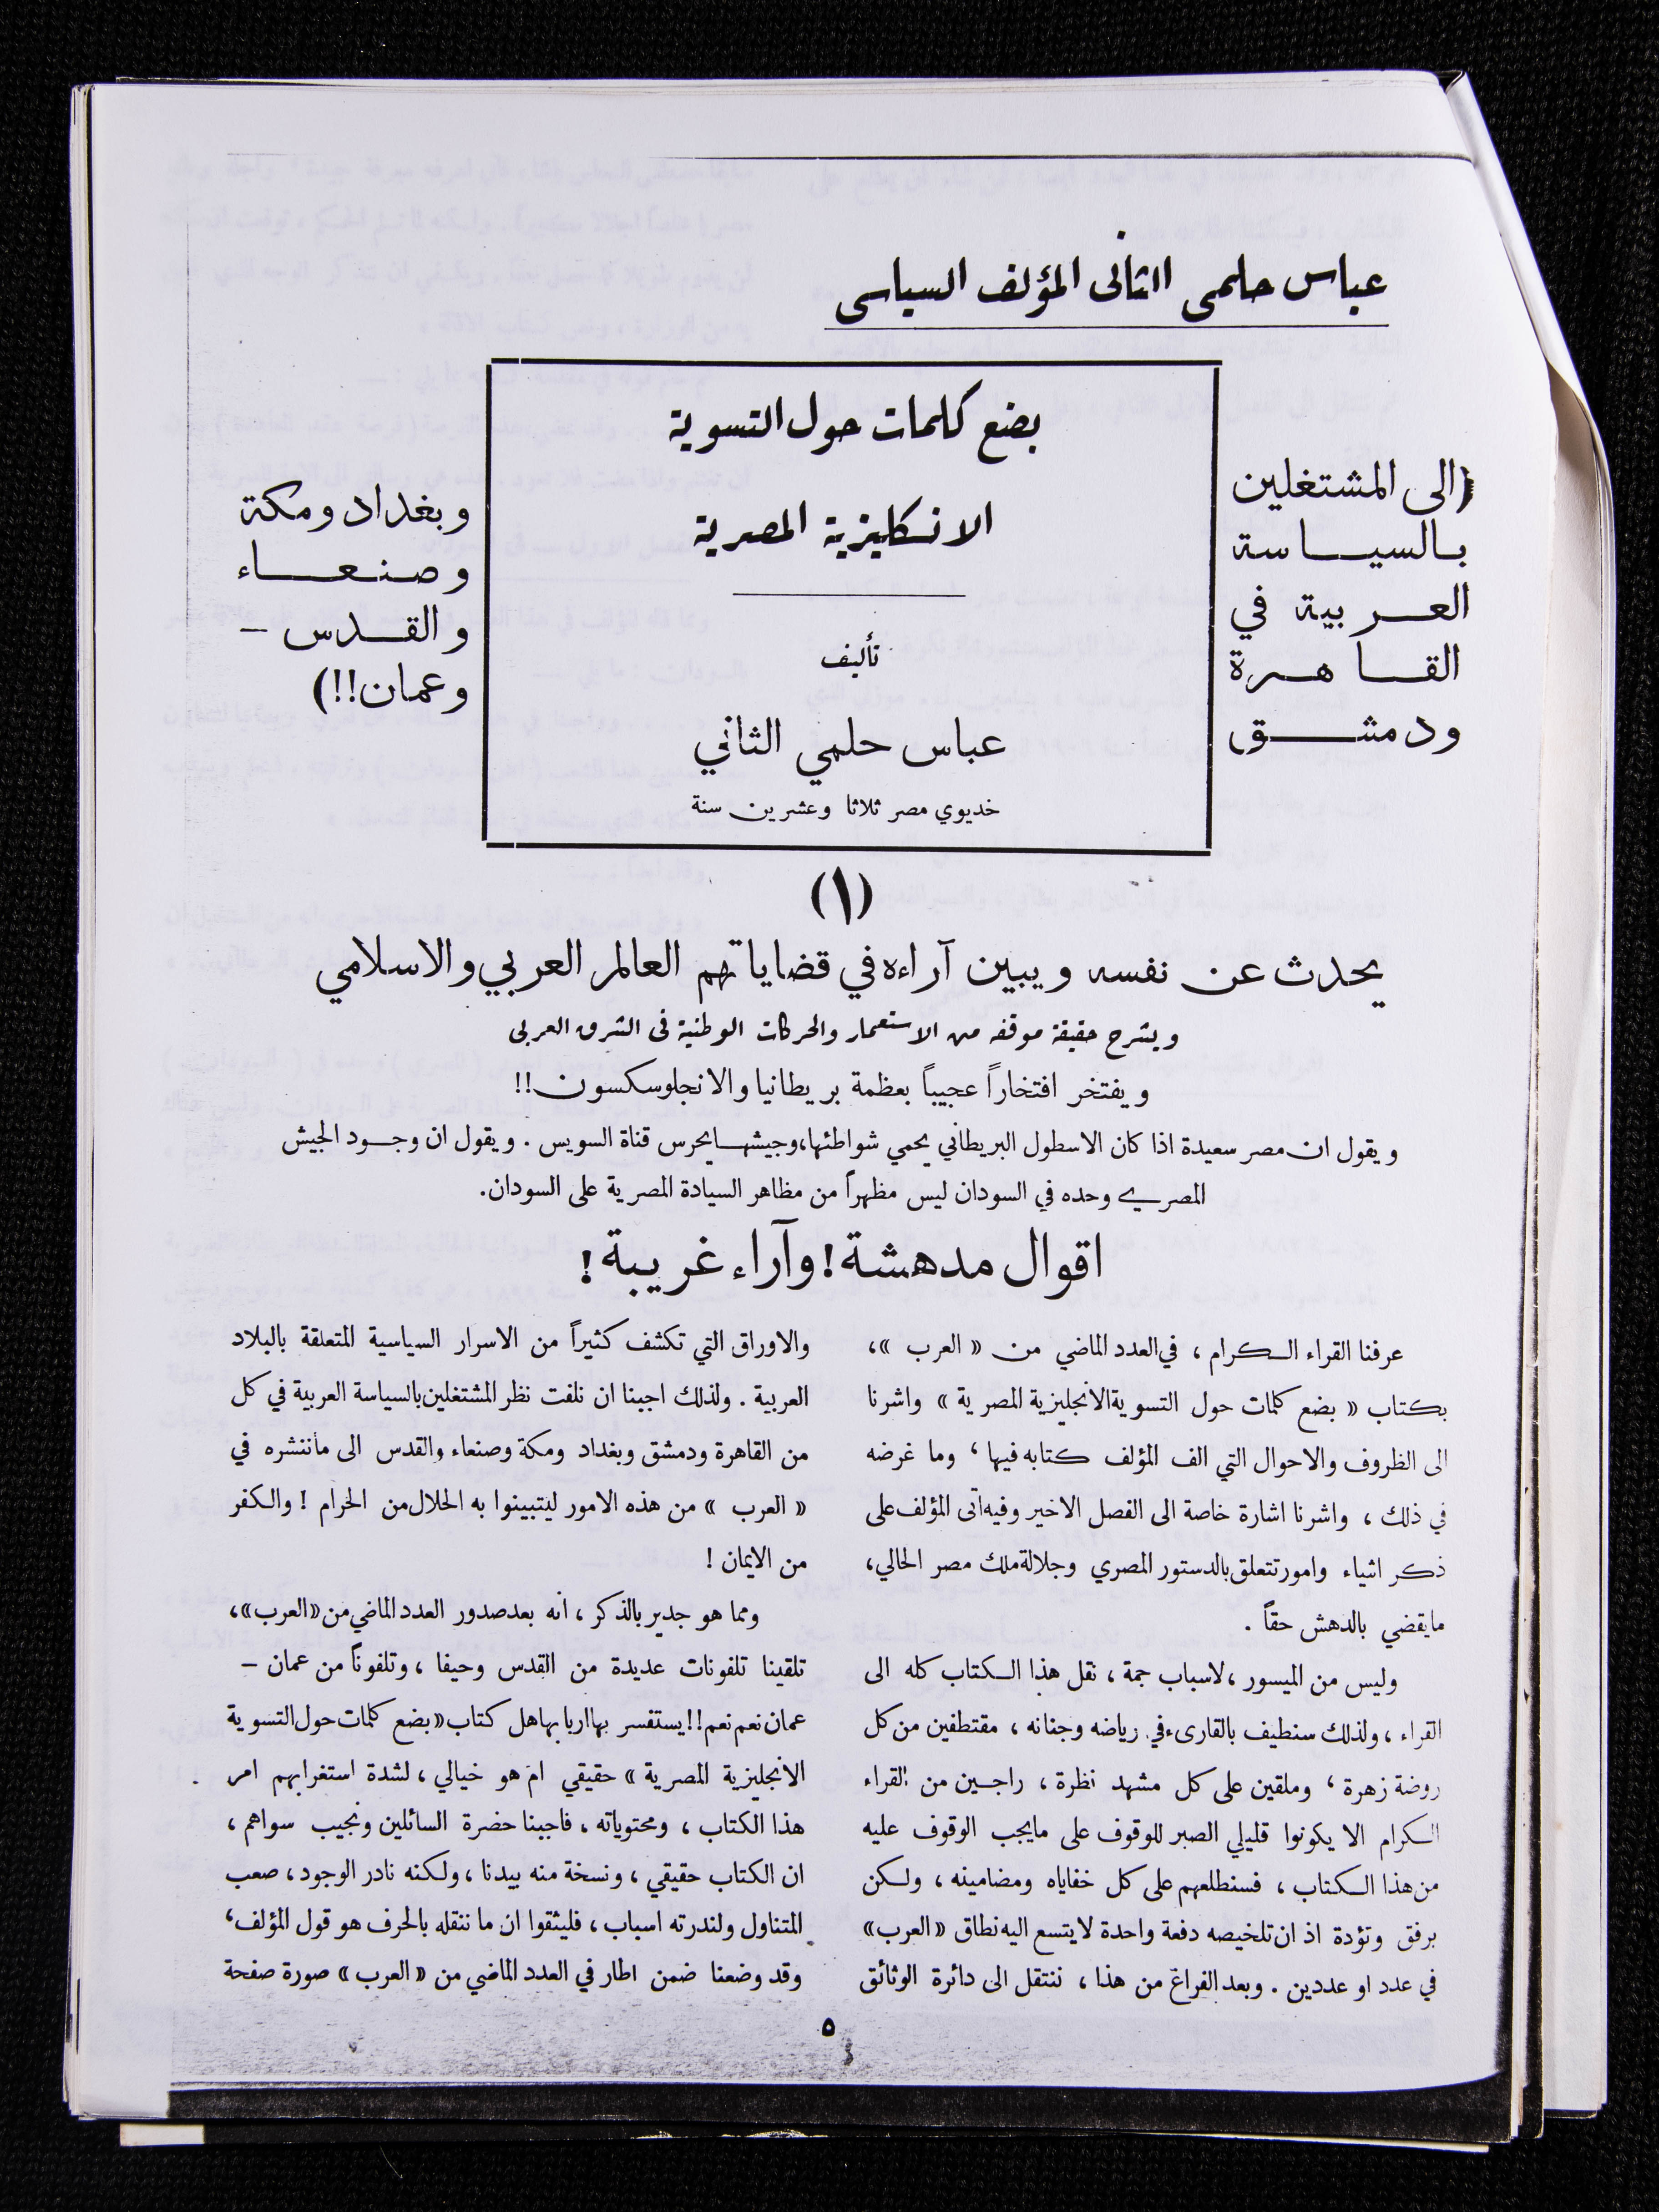 عباس حلمى الثانى المؤلف السياسى
(الى المشتغلين
بالسياسة
العربية في
القاهرة
ودمشق
بضع كلمات حول التسوية
الانكليزية المصرية
تأليف
عباس حلمي الثاني
خديوي مصر ثلاثا وعشرين سنة
وبغداد ومكة
وصنعاء
والقدس –
وعمان!!)
(١)
يحدث عن نفسه ويبين آراءه في قضايا تهم العالم العربي والاسلامي
ويشرح حقيقة موقفه من الاستعمار والحركات الوطنية فى الشرق العربى
ويفتخر افتخاراً عجيباً بعظمة بريطانيا والانجلوسكسون!!
ويقول ان مصر سعيدة اذا كان الاسطول البريطاني يحمي شواطئها، وجيشها يحرس قناة السويس . ويقول ان وجود الجيش
المصري وحده في السودان ليس مظهراً من مظاهر السيادة المصرية على السودان.
اقوال مدهشة! وآراء غريبة!
عرفنا القراء الكرام ، في العدد الماضي من « العرب »،
بكتاب « بضع كلمات حول التسوية الانجليزية المصرية » واشرنا
الى الظروف والاحوال التي الف المؤلف كتابه فيها ، وما غرضه
في ذلك ، واشرنا اشارة خاصة الى الفصل الاخير وفيه أتى المؤلف على
ذكر اشياء وامور تتعلق بالدستور المصري وجلالة ملك مصر الحالي،
ما يقضي بالدهش حقاً .
وليس من الميسور ، لاسباب جمة ، نقل هذا الكتاب كله الى
القراء ، ولذلك سنطيف بالقارىء في رياضه وجنانه ، مقتطفين من كل
روضة زهرة ، وملقين على كل مشهد نظرة ، راجين من القراء
الكرام الا يكونوا قليلي الصبر للوقوف على ما يجب الوقوف عليه
من هذا الكتاب ، فسنطلعهم على كل خفاياه ومضامينه ، ولكن
برفق وتؤدة اذ ان تلخيصه دفعة واحدة لا يتسع اليه نطاق « العرب »
في عدد او عددين . وبعد الفراغ من هذا ، ننتقل الى دائرة الوثائق
والاوراق التي تكشف كثيراً من الاسرار السياسية المتعلقة بالبلاد
العربية . ولذلك اجبنا ان نلفت نظر المشتغلين بالسياسة العربية في كل
من القاهرة ودمشق وبغداد ومكة وصنعاء والقدس الى ما ننشره في
« العرب » من هذه الامور ليتبينوا به الحلال من الحرام ! والكفر
من الايمان !
ومما هو جدير بالذكر ، انه بعد صدور العدد الماضي من «العرب»،
تلقينا تلفونات عديدة من القدس وحيفا ، وتلفوناً من عمان –
عمان نعم نعم!! يستفسر بها اربابها هل كتاب «بضع كلمات حول التسوية
الانجليزية المصرية » حقيقي ام هو خيالي ، لشدة استغرابهم امر
هذا الكتاب ، ومحتوياته ، فاجبنا حضرة السائلين ونجيب سواهم ،
ان الكتاب حقيقي ، ونسخة منه بيدنا ، ولكنه نادر الوجود ، صعب
المتناول ولندرته اسباب ، فليثقوا ان ما ننقله بالحرف هو قول المؤلف ،
وقد وضعنا ضمن اطار في العدد الماضي من « العرب » صورة صفحة
٥